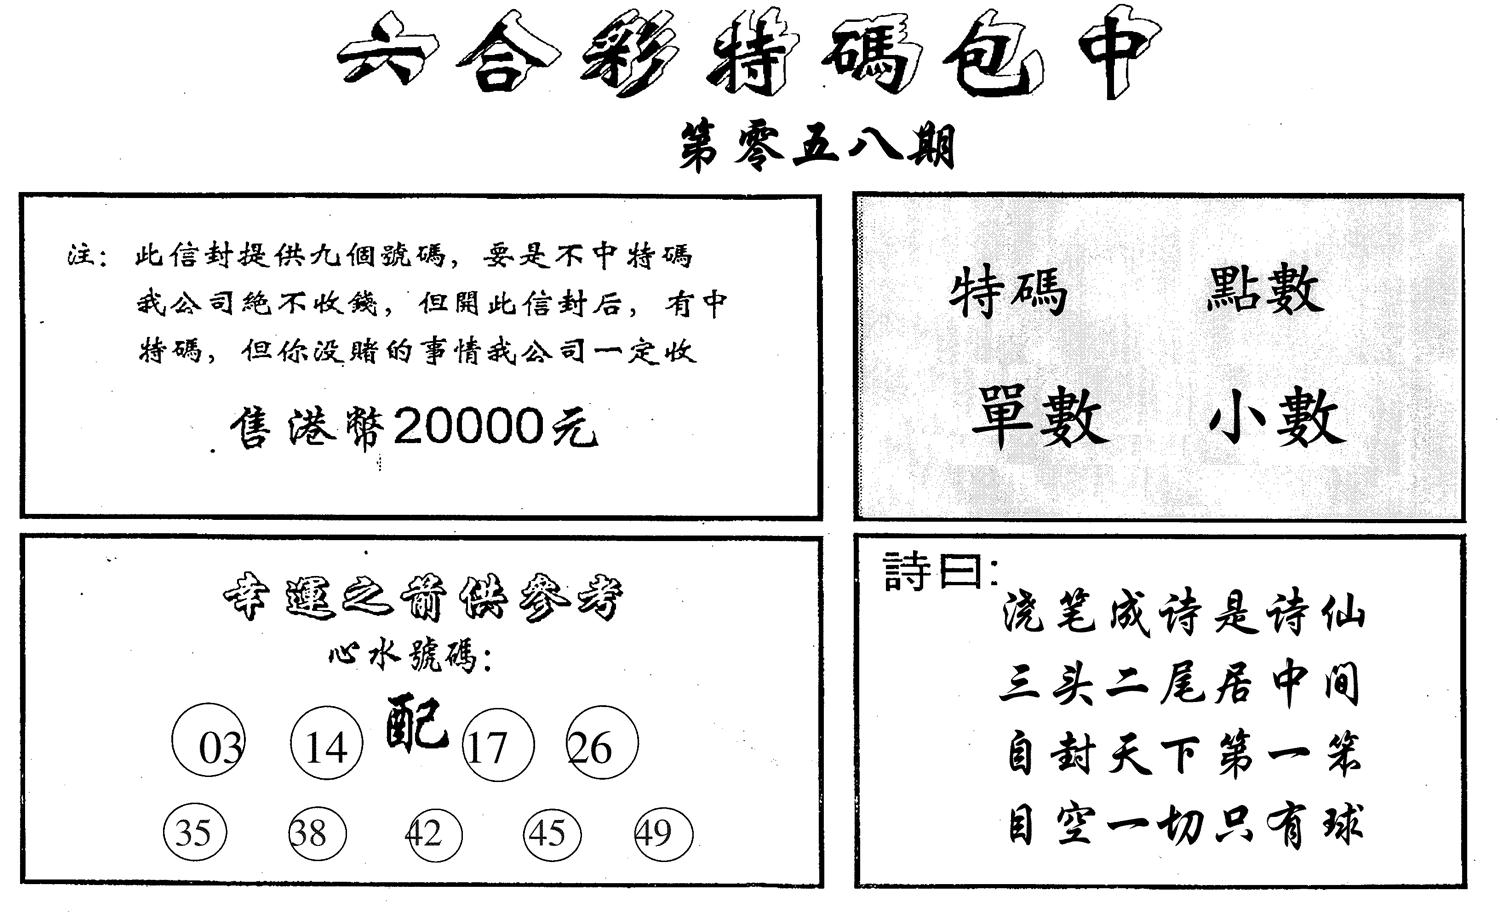 六合彩特碼包中
第零五八期
注：此信封提供九個號碼，要是不中特碼
我公司絕不收錢，但開此信封后，有中
特碼，但你没賭的事情我公司一定收
售港幣20000元
特碼 點數
單數 小數
幸運之箭供參考
心水號碼：
03 14 配 17 26
35 38 42 45 49
詩曰：
浇笔成诗是诗仙
三头二尾居中间
自封天下第一笨
目空一切只有球